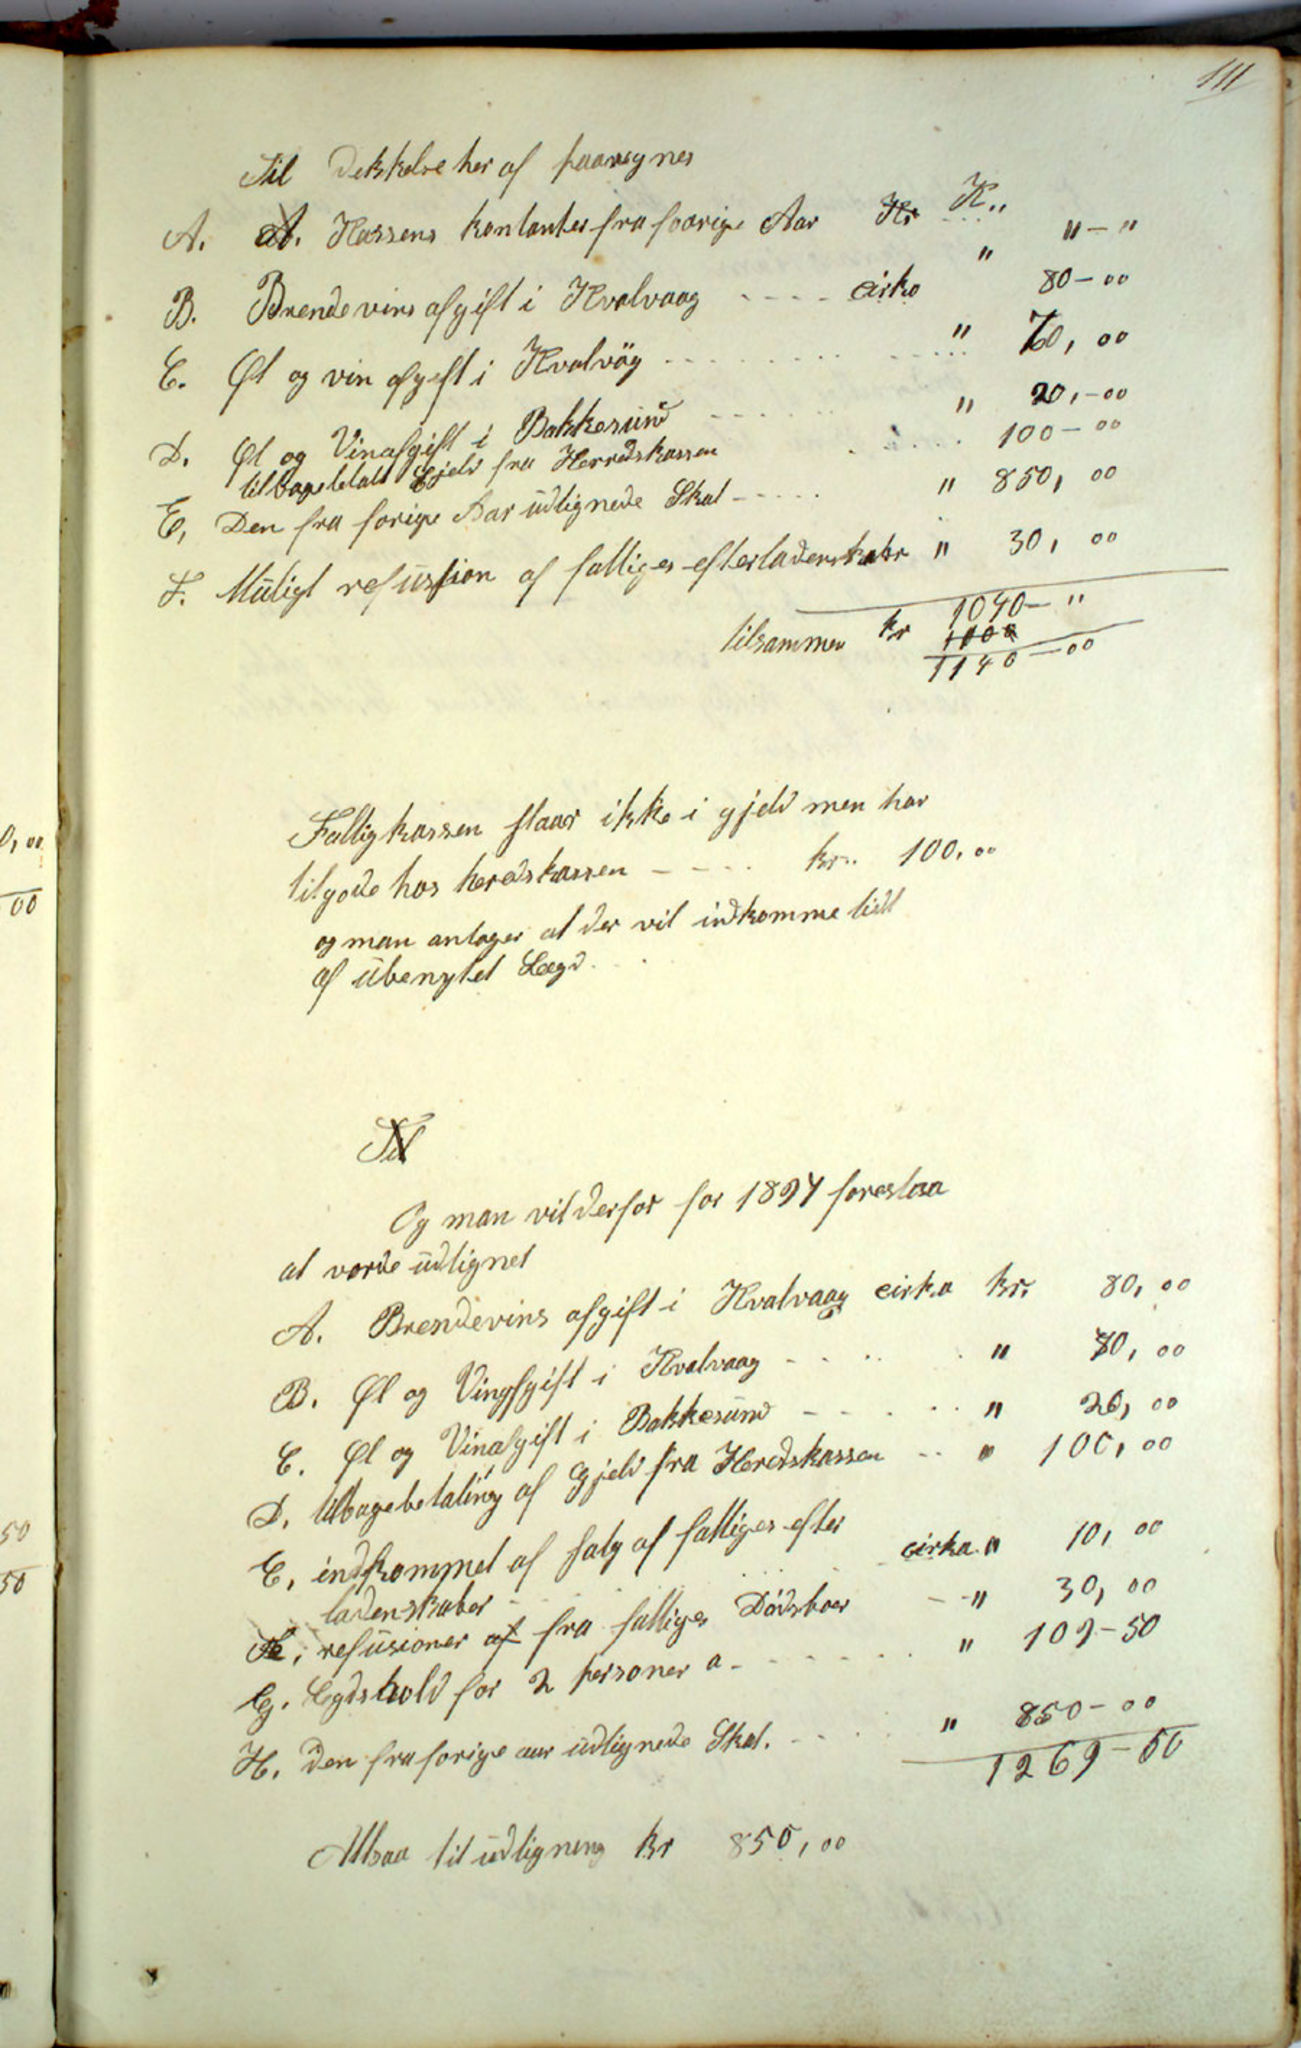 111
Til Dekkelse her af paaregnes
A. A. Kassens kontanter fra foorige Aar Kr K.. " — "
B. Brendevins afgift i Kvalvaag - - - - cirka " 80 — 00
C. Øl og vin afgift i Kvalvåg - - - - " 70, 00
D. Øl og Vinafgift i Bakkesund - - - - " 20, — 00
tilbagebetalt Gjeld fra Herredskassen 100 — 00
E, Den fra forige Aar udlignede Skat - - - - " 850, 00
F. Muligt refussion af fattiges efterladenskabr " 30, 00
1040 — "
tilsammen kr 1000
1140 — 00
Fattigkassen staar ikke i gjeld men har
tilgode hos heredskassen - - - - kr.. 100.00
og man antager at der vil indkomme lidt
af ubenyttet Lægd.
Til
Og man vil derfor for 1897 foreslaa
at vorde udlignet
A. Brendevins afgift i Kvalvaag cirka kr. 80, 00
B. Øl og Vinafgift i Kvalvaag - - - - " 70, 00
C. Øl og Vinafgift i Bakkesund - - - - " 20, 00
D. tilbagebetaling af Gjeld fra Heredskassen - - " 100, 00
E, indkommet af salg af fattiges efter
ladenskaber - - cirka " 10, 00
F, refusioner af fra fattiges Dødsboer - - " 30, 00
G. Legdshold for 2 personer a - - - - " 109 — 50
H. Den fra forige aar udlignede Skat. - - - " 850 — 00
1269 — 50
Altsaa til udligning kr 850, 00
0, 00
00
50
50